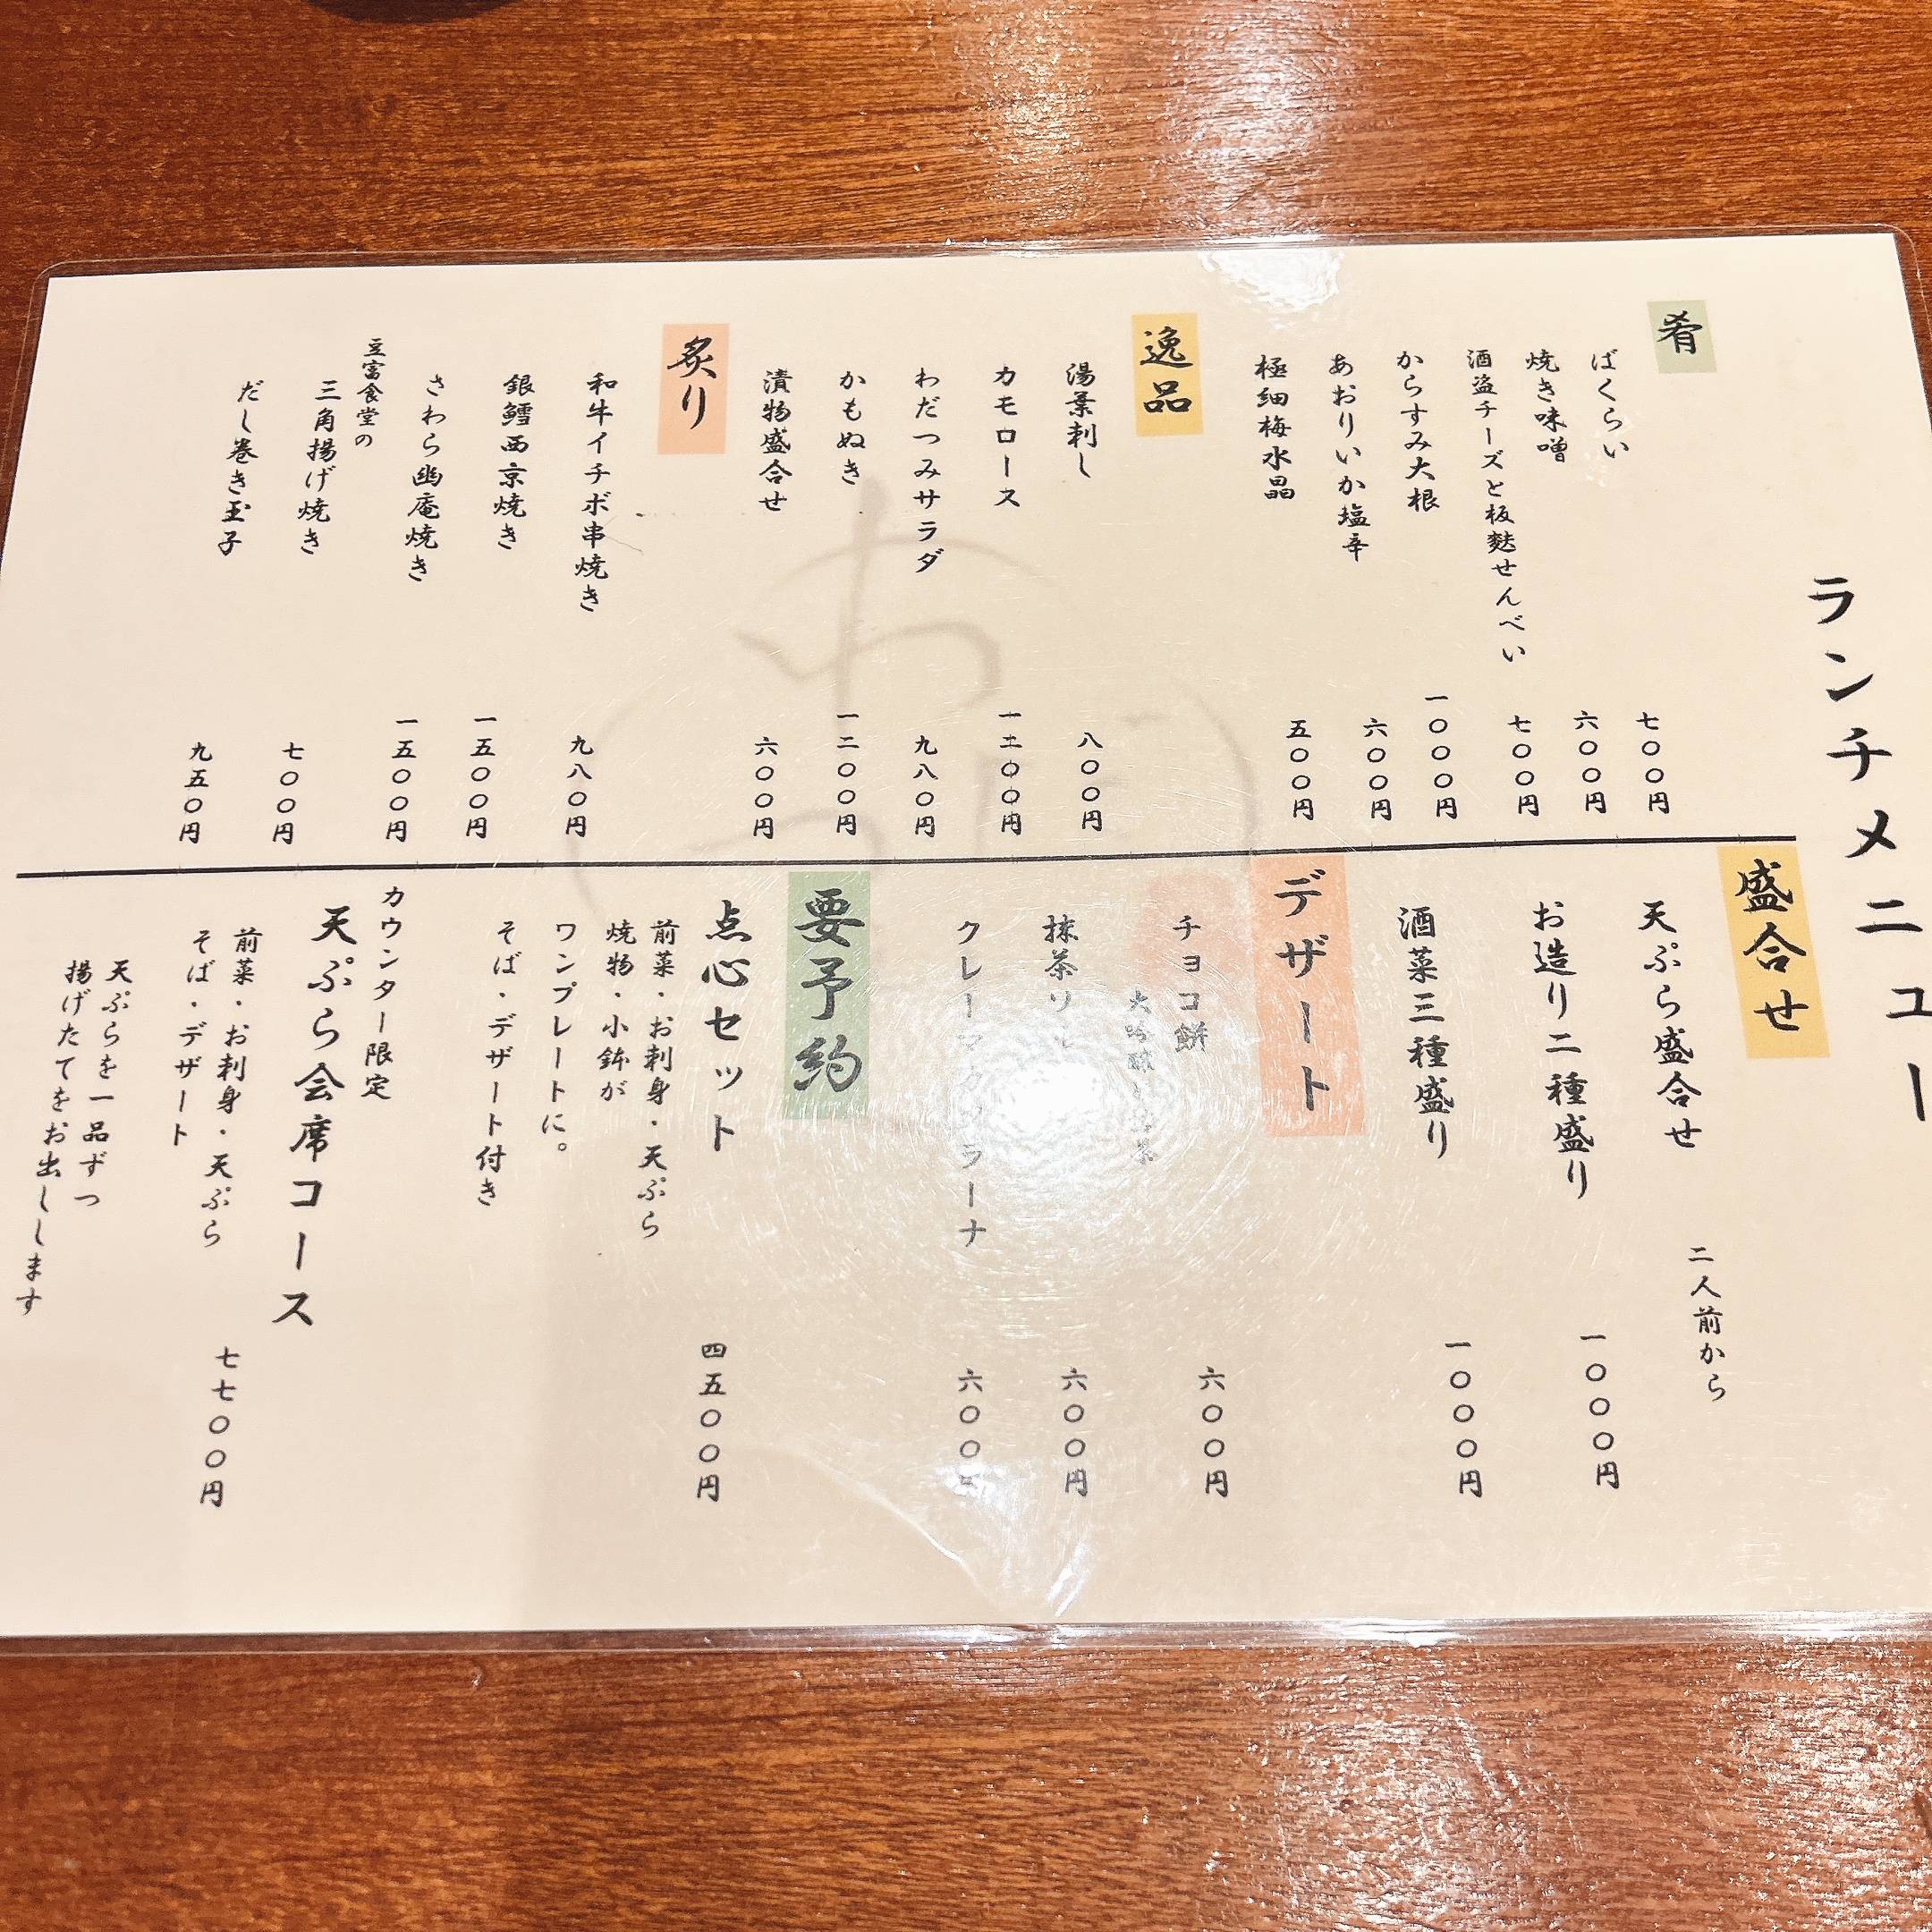 ランチメニュー
肴
ばくらい
七〇〇円
焼き味噌
六〇〇円
酒盗チーズと板麩せんべい
七〇〇円
からすみ大根
一〇〇〇円
あおりいか塩辛
六〇〇円
極細梅水晶
五〇〇円
逸品
湯葉刺し
八〇〇円
カモロース
一二〇〇円
わだつみサラダ
九八〇円
かもぬき
一二〇〇円
漬物盛合せ
六〇〇円
炙り
和牛イチボ串焼き
九八〇円
銀鱈西京焼き
一五〇〇円
さわら幽庵焼き
一五〇〇円
豆富食堂の
三角揚げ焼き
七〇〇円
だし巻き玉子
九五〇円
盛合せ
二人前から
天ぷら盛合せ
お造り二種盛り
一〇〇〇円
酒菜三種盛り
一〇〇〇円
デザート
チョコ餅
大吟醸
六〇〇円
抹茶
六〇〇円
クレーマカタラーナ
六〇〇円
要予約
点心セット
四五〇〇円
前菜・お刺身・天ぷら
焼物・小鉢が
ワンプレートに。
そば・デザート付き
カウンター限定
天ぷら会席コース
七七〇〇円
前菜・お刺身・天ぷら
そば・デザート
天ぷらを一品ずつ
揚げたてをお出しします